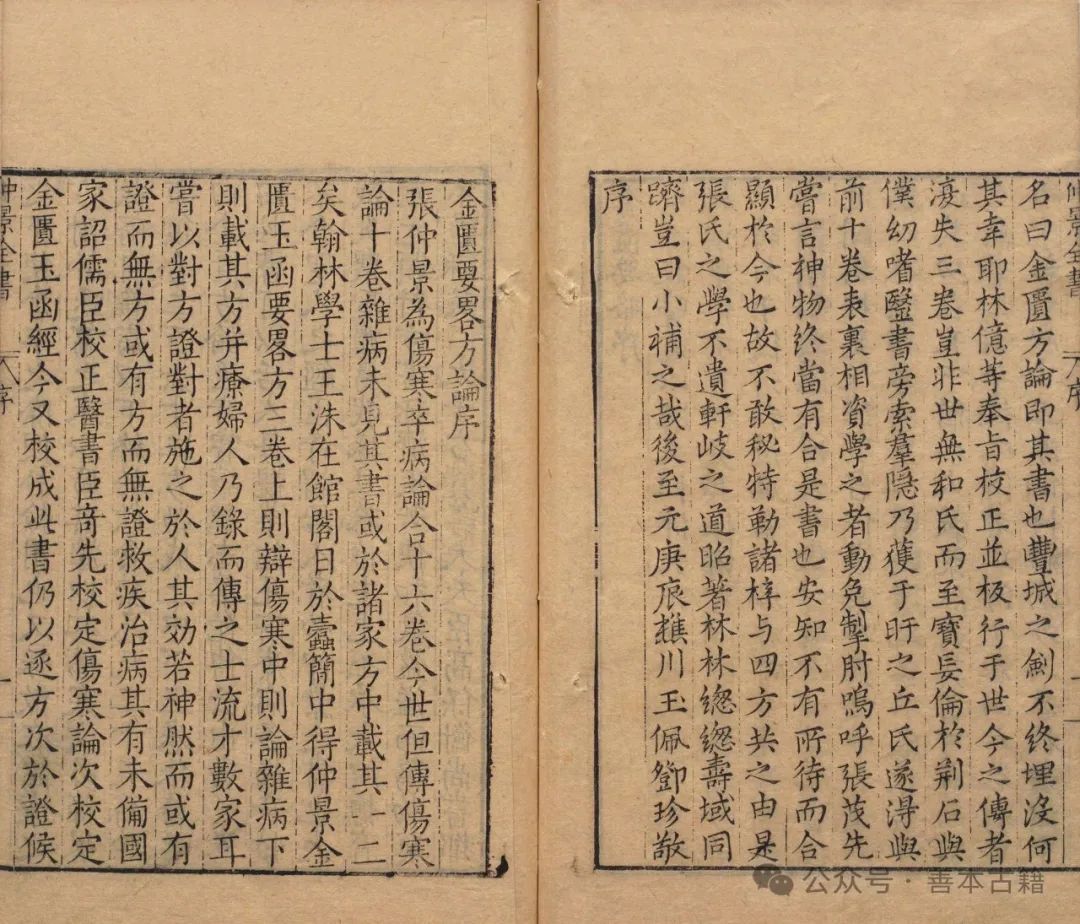 仲景全書 序
名曰金匱方論即其書也豐城之劍不終埋没何
其幸耶林億等奉旨校正並板行于世今之傳者
復失三卷豈非世無和氏而至寶妄倫於荆石與
僕幼嗜醫書旁索羣隱乃獲于盱之丘氏遂淂與
前十卷表裏相資學之者動免掣肘嗚呼張茂先
嘗言神物終當有合是書也安知不有所待而合
顯於今也故不敢秘特勒諸梓与四方共之由是
張氏之學不遺軒岐之道昭著林林總總壽域同
躋豈曰小補之哉後至元庚辰樵川玉佩鄧珍敬
序
金匱要畧方論序
張仲景為傷寒卒病論合十六卷今世但傳傷寒
論十卷雜病未見其書或於諸家方中載其一二
矣翰林學士王洙在館閣日於蠹簡中得仲景金
匱玉函要畧方三卷上則辯傷寒中則論雜病下
則載其方并療婦人乃錄而傳之士流才數家耳
嘗以對方證對者施之於人其効若神然而或有
證而無方或有方而無證救疾治病其有未備國
家詔儒臣校正醫書臣竒先校定傷寒論次校定
金匱玉函經今又校成此書仍以逐方次於證候
仲景全書 序 一
公众号·善本古籍